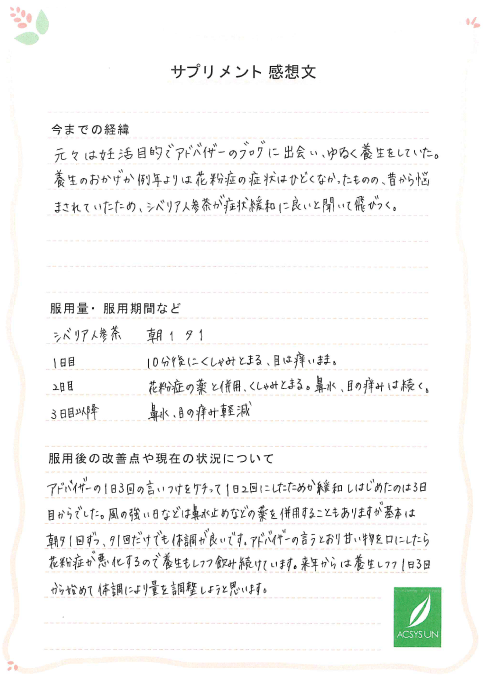 サプリメント 感想文
今までの経緯
元々は妊活目的でアドバイザーのブログに出会い、ゆるく養生をしていた。
養生のおかげか例年よりは花粉症の症状はひどくなかったものの、昔から悩
まされていたため、シベリア人参茶が症状緩和に良いと聞いて飛びつく。
服用量・服用期間など
シベリア人参茶 朝1 夕1
1日目 10分後にくしゃみとまる、目は痒いまま。
2日目 花粉症の薬と併用、くしゃみとまる。鼻水、目の痒みは続く。
3日目以降 鼻水、目の痒み軽減
服用後の改善点や現在の状況について
アドバイザーの1日3回の言いつけをケチって1日2回にしたためか緩和しはじめたのは3日
目からでした。風の強い日などは鼻水止めなどの薬を併用することもありますが基本は
朝夕1回ずつ、夕1回だけでも体調が良いです。アドバイザーの言うとおり甘い物を口にしたら
花粉症が悪化するので養生もしつつ飲み続けています。来年からは養生しつつ1日3回
から始めて体調により量を調整しようと思います。
ACSYSUN